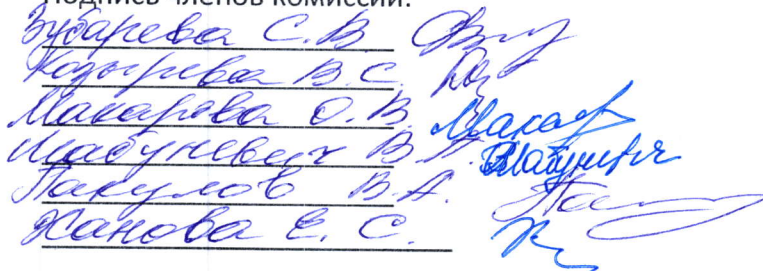 Подпись членов комиссии:
Зубарева С.В.
Козырева В.С.
Макарова О.В. Макар
Шабуневич В.П. Шабуневич
Пакулов В.А.
Ханова Е.С.